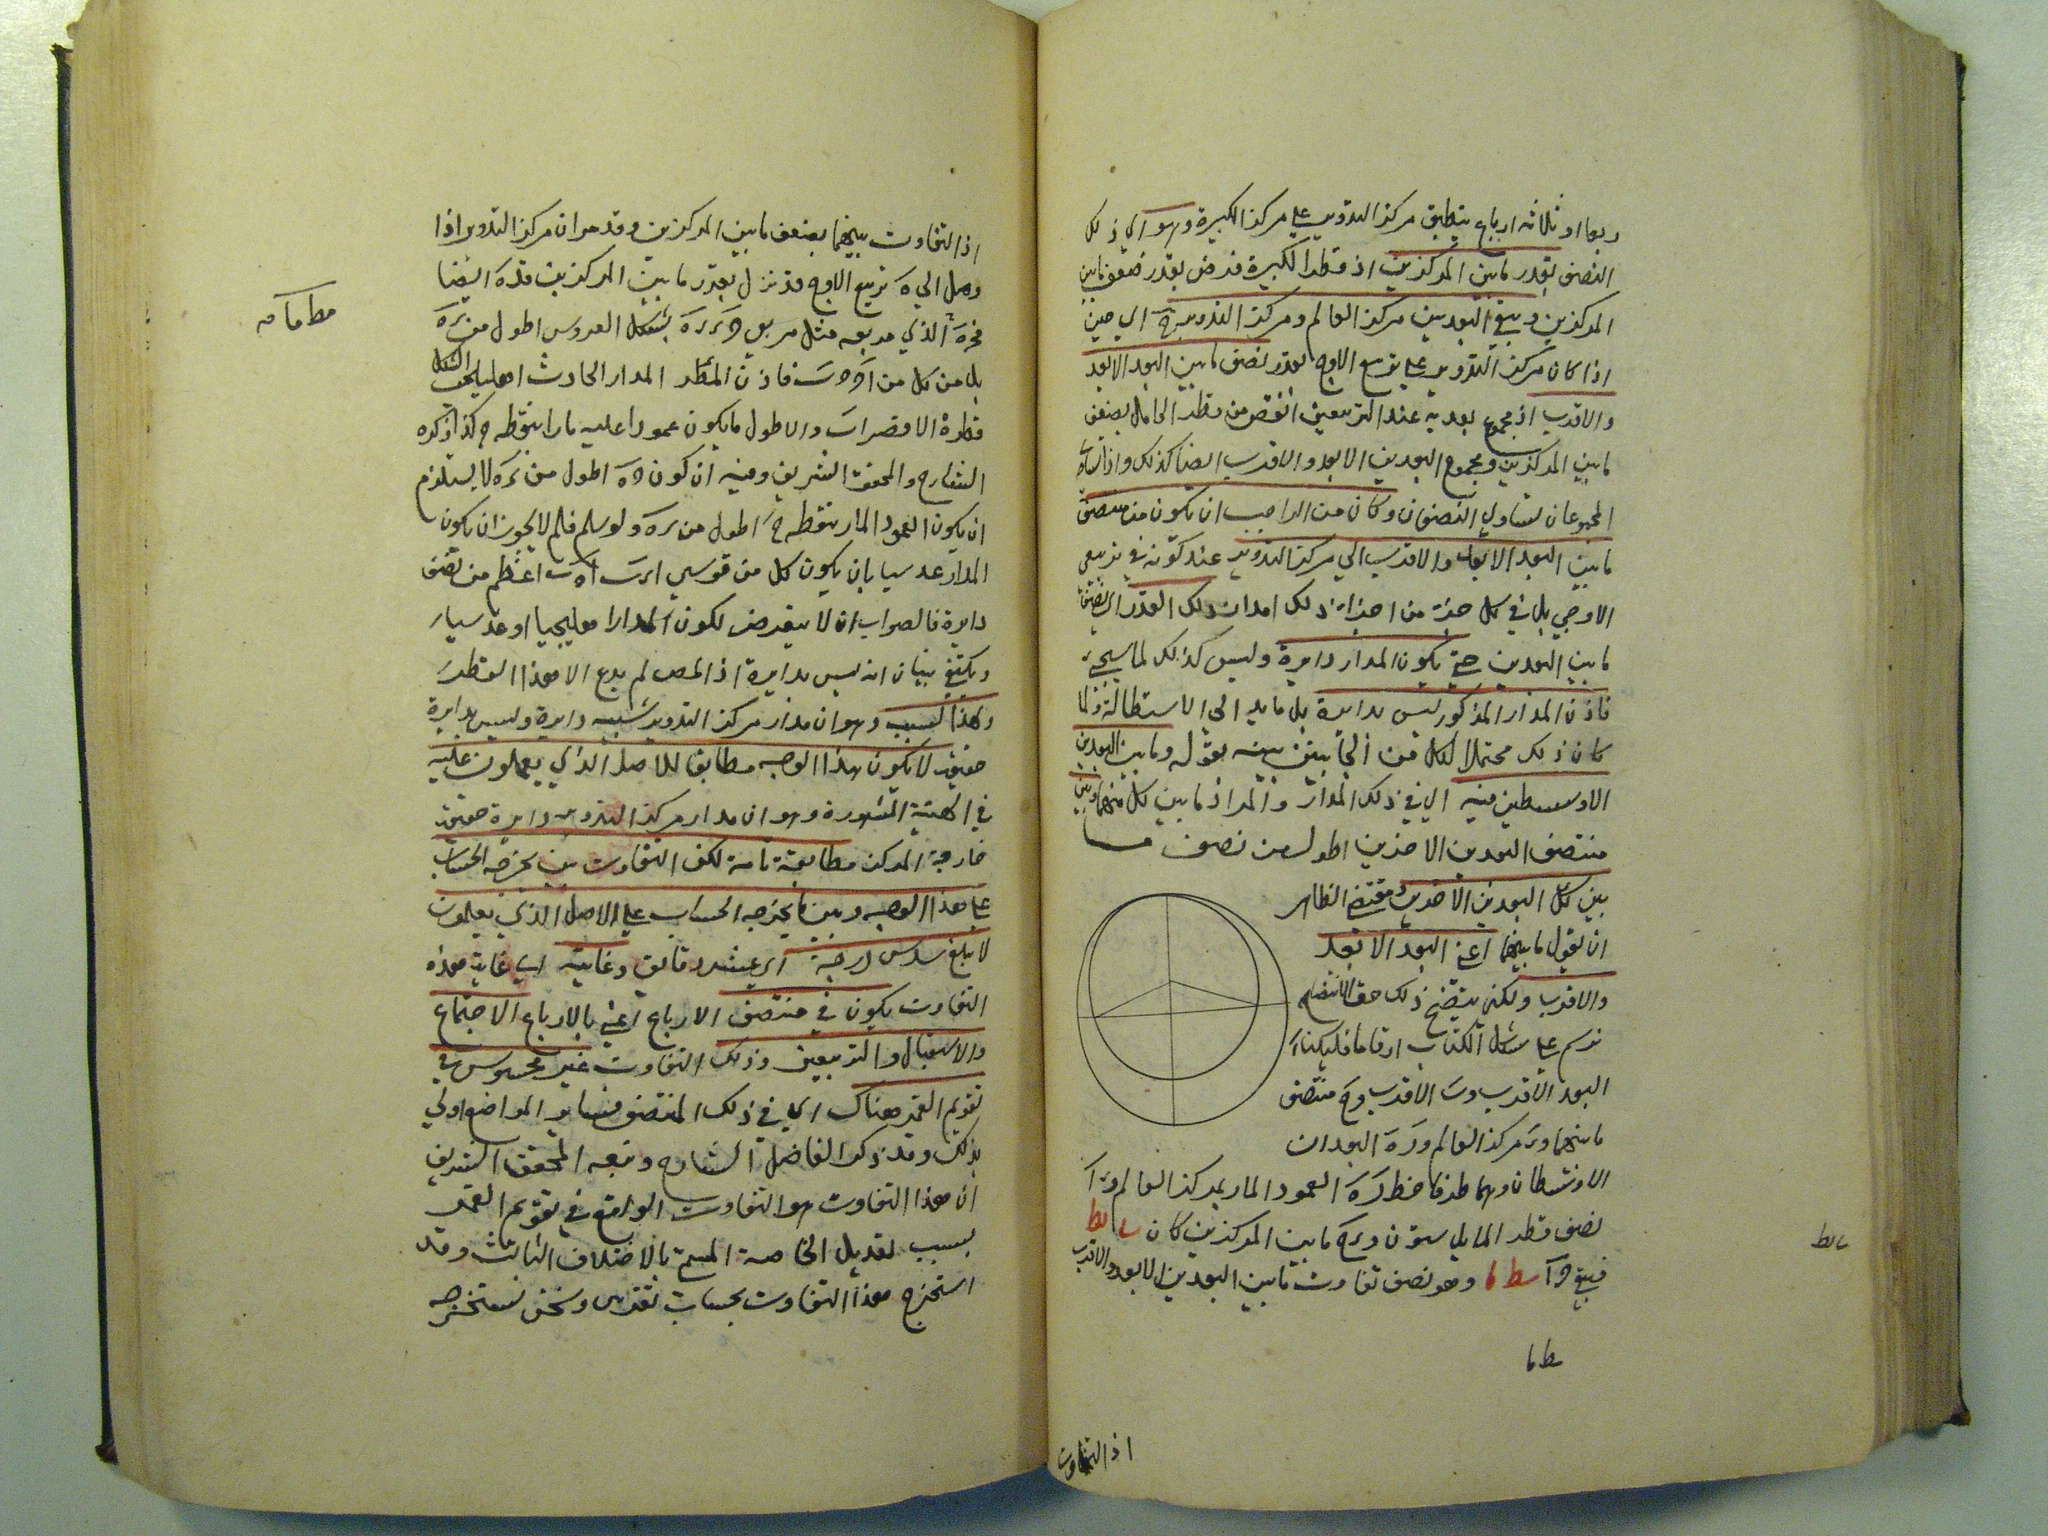 ربعا او ثلاثه ارباع ينطبق مركز التدوير على مركز الكبيرة وهو اى ذلك
النصف بقدر ما بين المركزين اذ قطر الكبيرة فرض بقدر ضعف ما بين
المركزين ويبقى البعد بين مركز العالم ومركز التدوير ح اى حين
اذا كان مركز التدوير على تربيع الاوج بقدر نصف ما بين البعد الابعد
والاقرب اذ مجموع بعديه عند التربيعين انقص من قطر الحامل بضعف
ما بين المركزين ومجموع البعدين الابعد والاقرب ايضا كذلك واذا تساوى
المجموعان تساوى النصفان وكان من الواجب ان يكون من منتصف
ما بين البعد الابعد والاقرب الى مركز التدوير عند كونه فى تربيعى
الاوجى بل فى كل جزء من اجزاء ذلك المدار ذلك القدر اى نصف
ما بين البعدين حتى يكون المدار دايرة وليس كذلك لما سيجىء
فاذن المدار المذكور ليس بدايرة بل مايل الى الاستطالة ولما
كان ذلك محتملا لكل من الجانبين بينه بقوله وما بين البعدين
الاوسطين منه اى فى ذلك المدار والمراد ما بين كل منهما وبين
منتصف البعدين الاخرين اطول من نصف ما
بين كل البعدين الاخرين ومقتضى الظاهر
ان يقول ما بينهما اعنى البعد الابعد
والاقرب ولكى يتضح ذلك حق الاتضاح
نرسم على شكل الكتاب ارقاما فليكن اَ
البعد الاقرب وبَ الاقرب وحَ منتصف
ما بينهما وىَ مركز العالم ورَهَ البعدان
الاوسطان وهما طرفا خط رَهَ العمود المار بمركز العالم وىَ اَ
نصف قطر المايل ستون وىَحَ ما بين المركزين كان ى ىط
فيبقى حَ اَ مط ما وهو نصف تفاوت ما بين البعدين الابعد والاقرب
ى ىط
مط ما
اذ التفاوت
اذ التفاوت بينهما بضعف ما بين المركزين وقد مر ان مركز التدوير اذا
وصل الى هَ تربيع الاوج قد نزل بقدر ما بين المركزين قدَهَ ايضا
فحَهَ الذى مربعه مثل مربعى حَىَ ىَهَ بشكل العروس اطول من ىَهَ
مط ما مه
بل من كل من اَحَ حَبَ فاذن المدار الحادث اهليلجى الشكل
قطره الاقصر اَبَ والاطول ما يكون عمودا عليه مارا بنقطه ح كذا ذكره
الشارح والمحقق الشريف وفيه ان كون حَهَ اطول من ىَهَ لا يستلزم
ان يكون العمود المار بنقطه حَ اطول من رَهَ ولو سلم فلم لا يجوز ان يكون
المدار عدسيا بان يكون كل من قوسى ارَبَ اهَبَ اعظم من نصف
دايرة فالصواب ان لا يتعرض لكون المدار اهليلجيا او عدسيا
ويكتفى ببيان انه ليس بدايرة اذ المص لم يدع الا هذا القدر
ولهذا السبب وهو ان مدار مركز التدوير شبيه دايرة وليس بدايرة
حقيقه لا يكون هذا الوجه مطابقا للاصل الذى يعملون عليه
فى الهيئة المشهورة وهو ان مدار مركز التدوير دايرة حقيقه
خارجة المركز مطابقة تامة لكن التفاوت بين يخرجه الحساب
على هذا الوجه وبين ما يخرجه الحساب على الاصل الذى يعملون
لا يبلغ سدس درجة اى عشر دقايق وغايته اى غاية هذه
التفاوت يكون فى منتصف الارباع اعنى بالارباع الاجتماع
والاستقبال والتربيعين وذلك التفاوت غير محسوس فى
تقويم القمر هناك اى فى ذلك المنتصف فساير المواضع اولى
بذلك وقد ذكر الفاضل الشارح وتبعه المحقق الشريف
ان هذا التفاوت هو التفاوت الواقع فى تقويم القمر
بسبب تعديل الخاصة المسمى بالاختلاف الثالث وقد
استخرج هذا التفاوت بحساب ونحن نستخرجه